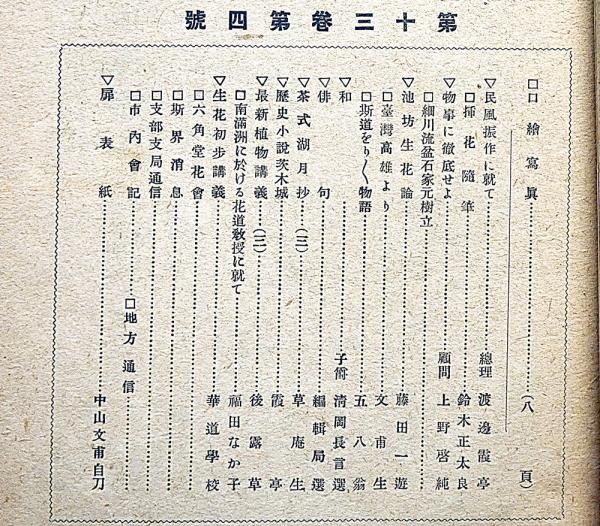 第十三卷第四號
□口繪寫眞……(八頁)
▽民風振作に就て……總理 渡邊霞亭
□揷花隨筆……鈴木正太良
▽物事に徹底せよ……顧問 上野啓純
□細川流盆石家元樹立……
▽池坊生花論……藤田一遊
□臺灣高雄より……文甫生
□斯道をり〱物語……五八翁
▽和……子爵 淸岡長言選
▽俳句……編輯局選
▽茶式湖月抄(三)……草庵生
▽歷史小說茨木城……霞亭
▽最新植物講義(三)……後露草
□南滿洲に於ける花道敎授に就て……福田なか子
▽生花初步講義……華道學校
□六角堂花會……
□斯界消息……
□支部支局通信……
□市內會記……□地方通信
▽扉表紙……中山文甫自刀